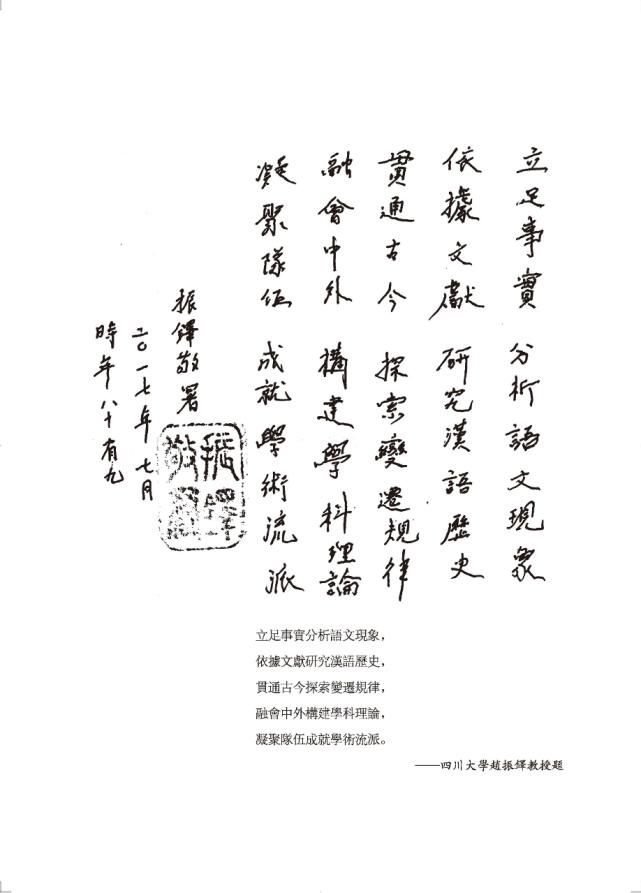 立足事實 分析語文現象
依據文獻 研究漢語歷史
貫通古今 探索變遷規律
融會中外 構建學科理論
凝聚隊伍 成就學術流派
振鐸敬署
二〇一七年七月
時年八十有九
立足事實分析語文現象，
依據文獻研究漢語歷史，
貫通古今探索變遷規律，
融會中外構建學科理論，
凝聚隊伍成就學術流派。
——四川大學趙振鐸教授題